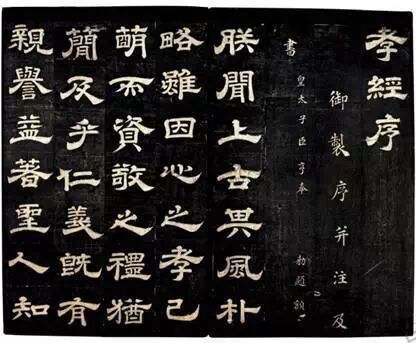 孝經序
御製序并注及
書
皇太子臣亨奉 勅題額
朕聞上古其風朴
略雖因心之孝已
萌而資敬之禮猶
簡及乎仁義既有
親譽益著聖人知